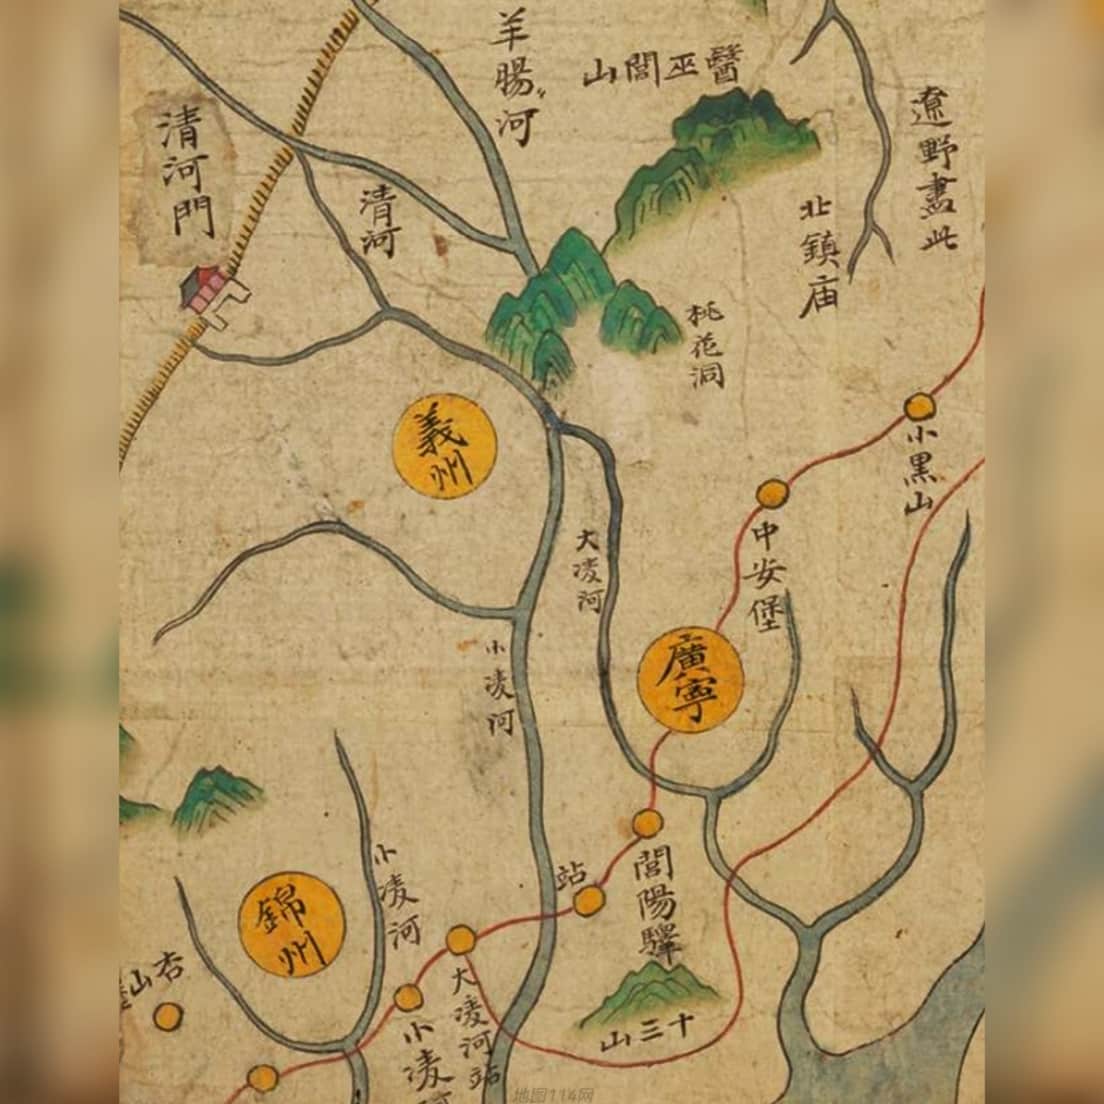 羊腸河
醫巫閭山
遼野盡此
清河門
清河
北鎮庙
桃花洞
小黑山
義州
中安堡
大凌河
廣寧
小凌河
小凌河
錦州
站
閭陽驛
杏山
大凌河站
十三山
小凌
地图114网